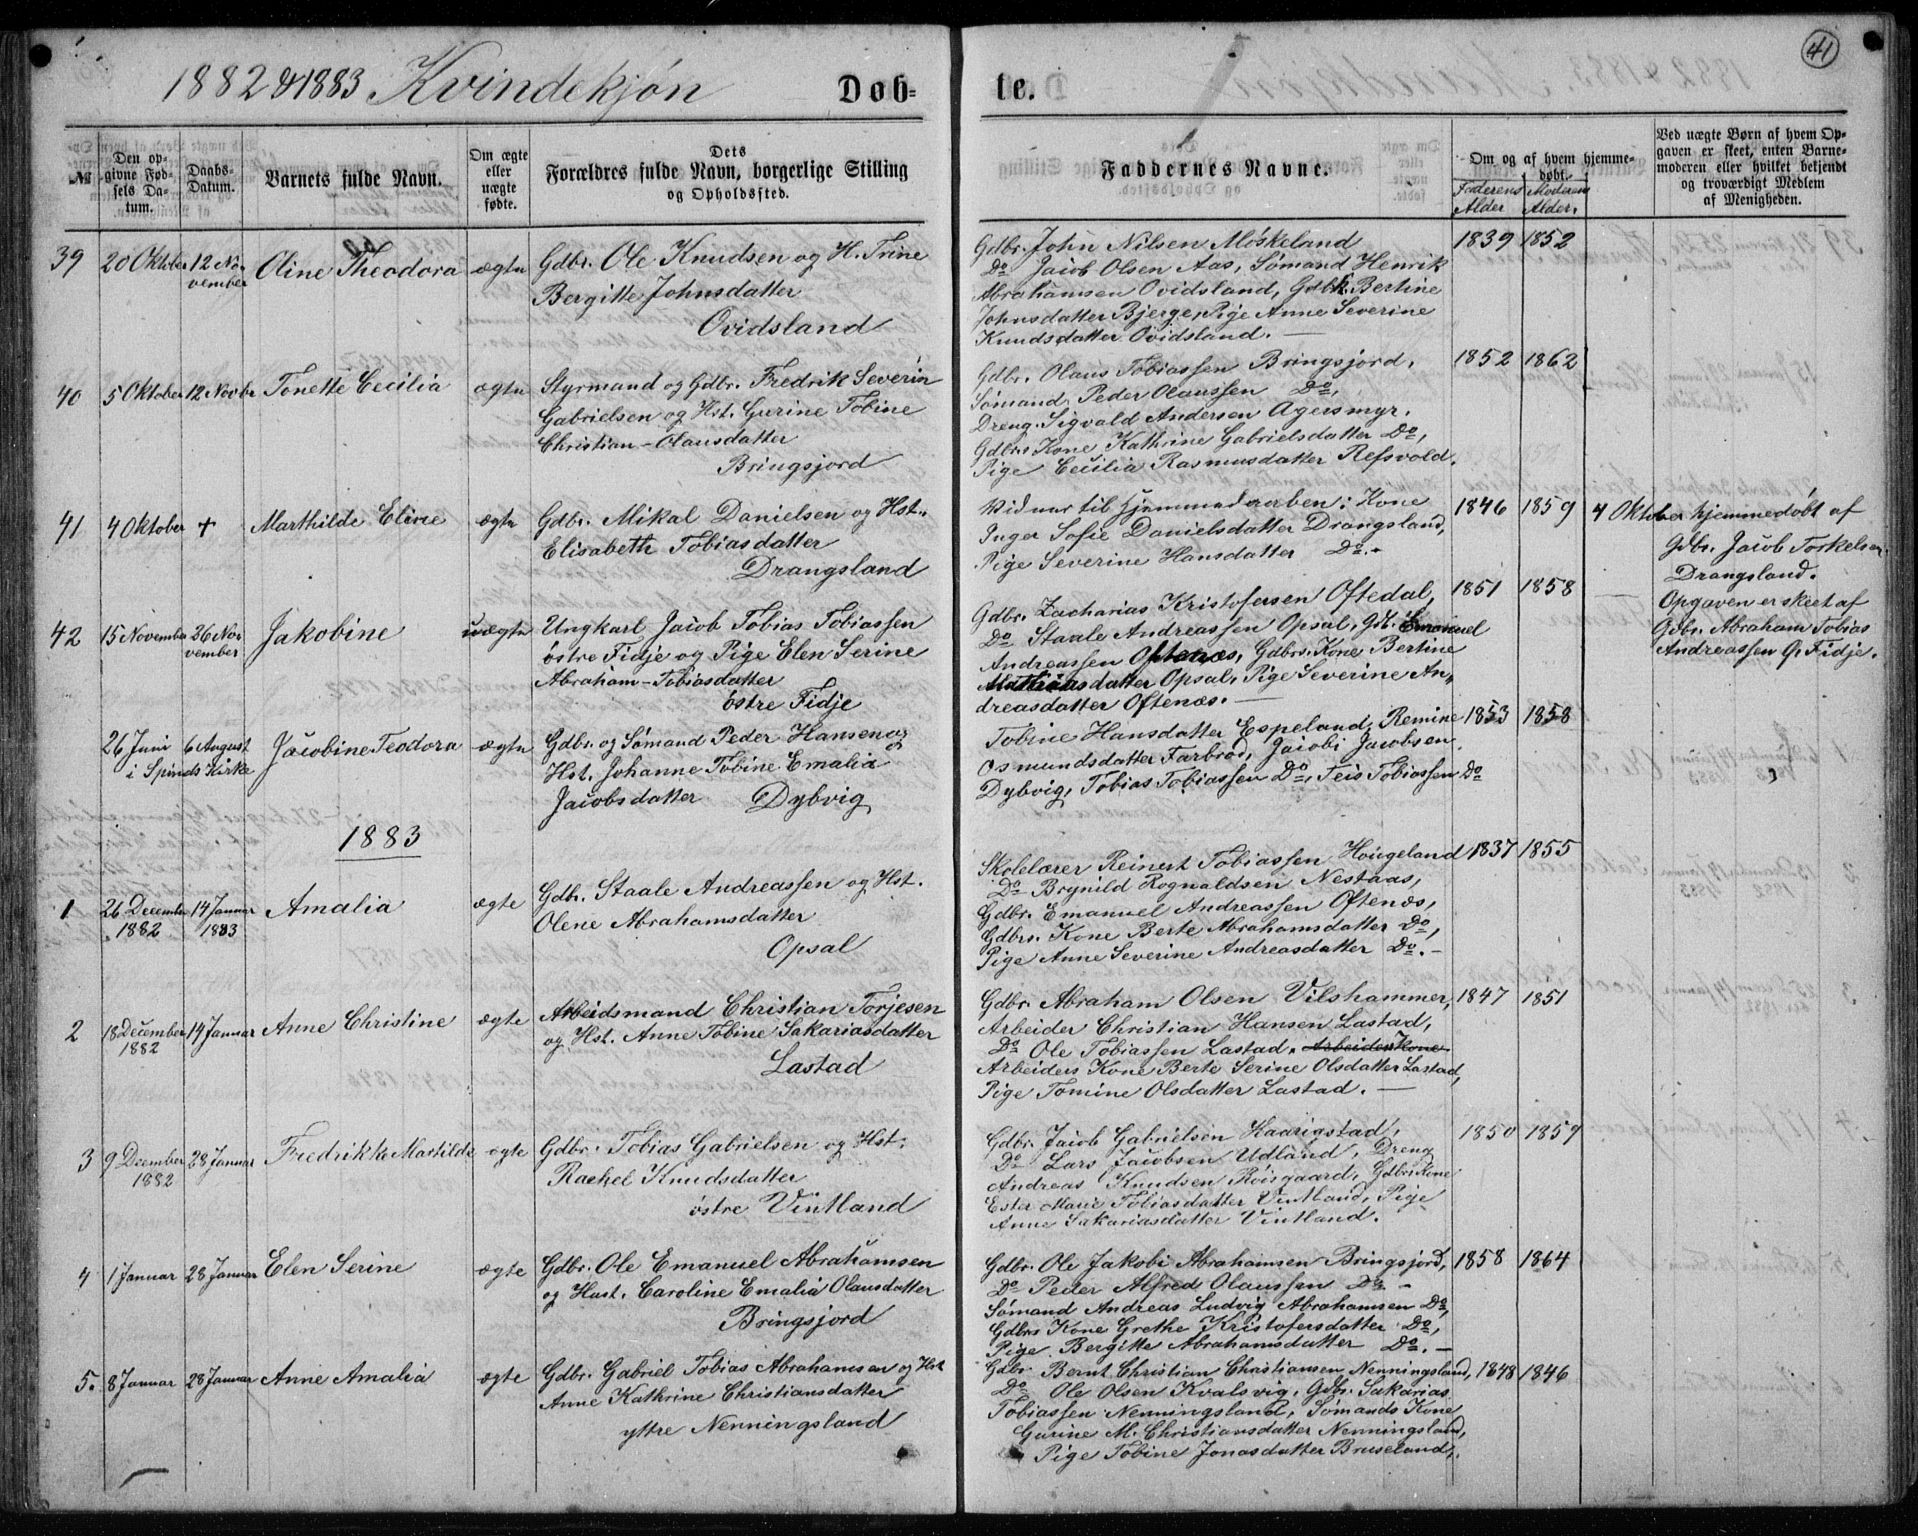 41
1882 & 1883 Kvindekjön Döb-
te.
№
Den op-
givne Fød-
sels Da-
tum.
Daabs-
Datum.
Barnets fulde Navn.
Om ægte
eller
uægte
fødte.
Dets
Forældres fulde Navn, borgerlige Stilling
og Opholdssted.
Faddernes Navne.
Om og af hvem hjemme-
døbt.
Faderens
Alder
Moderens
Alder.
Ved uægte Børn af hvem Op-
gaven er skeet, enten Barne-
moderen eller hvilket bekjendt
og troværdigt Medlem
af Menigheden.
39 20 Oktober 12 No-
vember Oline Theodora ægte Gdbr. Ole Knudsen og H. Trine
Bergitte Johnsdatter
Ovidsland
Gdbr. John Nilsen Möskeland 1839 1852
Do Jacob Olsen Aas, Sömand Henrik
Abrahamsen Ovidsland, Gdbk. Bertine
Johnsdatter Bjerge, Pige Anne Severine
Knudsdatter Ovidsland. —
40 5 Oktober 12 Novbr Tonette Cecilia ægte Styrmand og Gdbr. Fredrik Severin
Gabrielsen og Hst. Gurine Tobine
Christian-Olausdatter
Bringsjord
Gdbr. Olaus Tobiassen Bringsjord, 1852 1862
Sömand Peder Olaussen Do,
Dreng Sigvald Andersen Agersmyr.
Gdbrs Kone Kathrine Gabrielsdatter Do,
Pige Cecilia Rasmusdatter Refsvold.
41 4 Oktober + Marthilde Elivie ægte Gdbr. Mikal Danielsen og Hst.
Elisabeth Tobiasdatter
Drangsland
Vidner til Hjemmedaaben: Kone 1846 1859 4 Oktober hjemmedöbt af
Inger Sofie Danielsdatter Drangsland,
Pige Severine Hansdatter Do. -
Gdbr. Jacob Torkelsen
Drangsland.
42 15 November 26 No-
vember Jakobine uægte Ungkarl Jacob Tobias Tobiassen
östre Fidje og Pige Elen Serine
Abraham-Tobiasdatter
östre Fidje
Gdbr. Zacharias Kristofersen Oftedal, 1851 1858
Do Staale Andreassen Opsal, Gk. Emanuel
Andreassen Oftenæs, Gdbrs. Kone Bertine
Mathiasdatter Opsal, Pige Severine An-
dreasdatter Oftenæs. —
Opgaven er skeet af
Gdbr. Abraham Tobias
Andreassen Ö. Fidje.
26 Juni 6 August
i Spinds Kirke Jacobine Teodora ægte Gdbr. og Sömand Peder Hansen og
Hst. Johanne Tobine Emalia
Jacobsdatter Dybvig
Tobine Hansdatter Espeland, Remine 1853 1858
Osmundsdatter Farbrod, Jacobi Jacobsen
Dybvig, Tobias Tobiassen Do, Teis Tobiassen Do
1883
1 26 December
1882 14 Januar
1883 Amalia ægte Gdbr. Staale Andreassen og Hst.
Olene Abrahamsdatter
Opsal
Skolelærer Reinert Tobiassen Hougeland 1837 1855
Do Brynild Rognaldsen Nestaas,
Gdbr. Emanuel Andreassen Oftenæs,
Gdbrs. Kone Berte Abrahamsdatter Do,
Pige Anne Severine Andreasdatter Do. -
2 18 December
1882 14 Januar Anne Christine ægte Arbeidsmand Christian Torjesen
og Hst. Anne Tobine Sakariasdatter
Lastad
Gdbr. Abraham Olsen Vilshammer, 1847 1851
Arbeider Christian Hansen Lastad,
Do Ole Tobiassen Lastad, Arbeiders Kone
Arbeiders Kone Berte Serine Olsdatter Lastad,
Pige Tomine Olsdatter Lastad. —
3 9 December
1882 28 Januar Fredrikke Martilde ægte Gdbr. Tobias Gabrielsen og Hst.
Rachel Knudsdatter
östre Vintland
Gdbr. Jacob Gabrielsen Haarigstad, 1850 1857
Do Lars Jacobsen Udland, Dreng
Andreas Knudsen Röisgaard, Gdbrs Kone
Ester Marie Tobiasdatter Vintland, Pige
Anne Sakariasdatter Vintland.
4 1 Januar 28 Januar Elen Serine ægte Gdbr. Ole Emanuel Abrahamsen
og Hust. Caroline Emalia Olausdatter
Bringsjord
Gdbr. Ole Jakobi Abrahamsen Bringsjord, 1858 1864
Do Peder Alfred Olaussen Do -
Sömand Andreas Ludvig Abrahamsen Do,
Gdbrs Kone Grethe Kristofersdatter Do,
Pige Bergitte Abrahamsdatter Do. -
5. 8 Januar 28 Januar Anne Amalia ægte Gdbr. Gabriel Tobias Abrahamsen og Hst
Anne Kathrine Christiansdatter
yttre Nenningsland
Gdbr. Bernt Christian Christiansen Nenningsland, 1848 1846
Do Ole Olsen Kvalsvig, Gdbr. Sakarias
Tobiassen Nenningsland, Sömands Kone
Gurine M. Christiansdatter Nenningsland,
Pige Tobine Jonasdatter Bruseland.